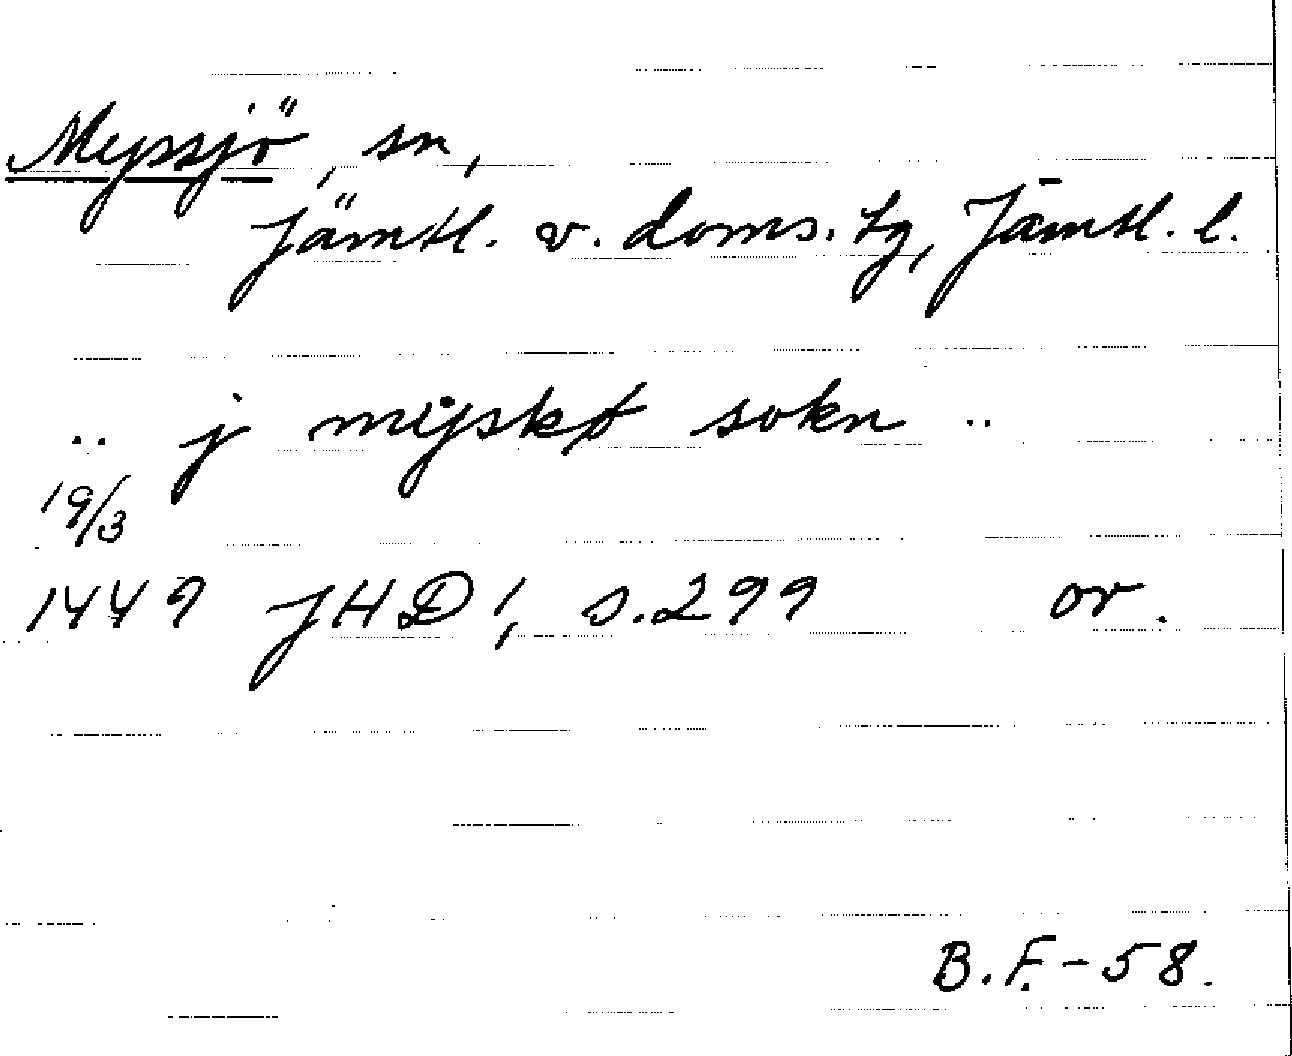 Myssjö, sn,
Jämtl. v. doms. tg, Jämtl. l.
.. j mÿskø sokn ..
19/3
1449 JHD 1, s. 299 or.
B.F.-58.